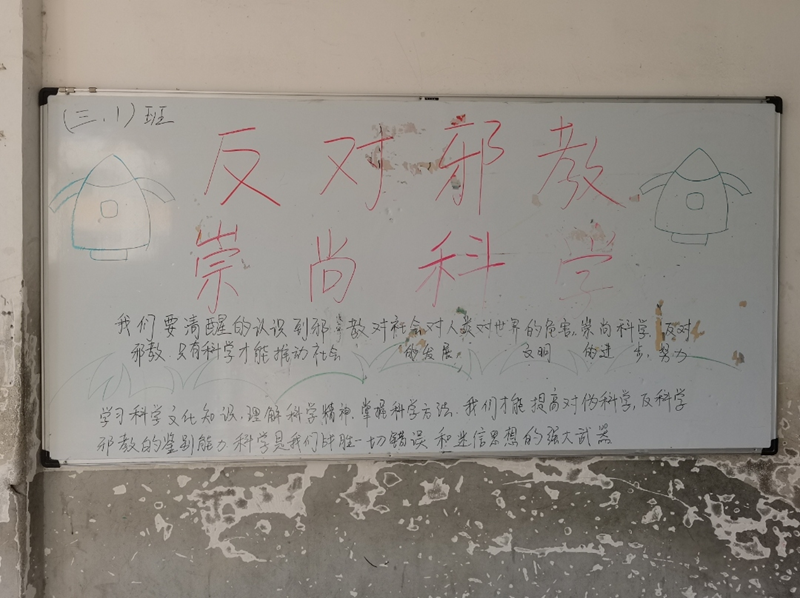 (三.1)班
反对邪教
崇尚科学
我们要清醒的认识到邪教对社会对人类对世界的危害,崇尚科学,反对
邪教.只有科学才能推动社会 的发展 文明 的进步,努力
学习科学文化知识.理解科学精神.掌握科学方法.我们才能提高对伪科学,反科学
邪教的鉴别能。科学是我们战胜一切错误和迷信思想的强大武器